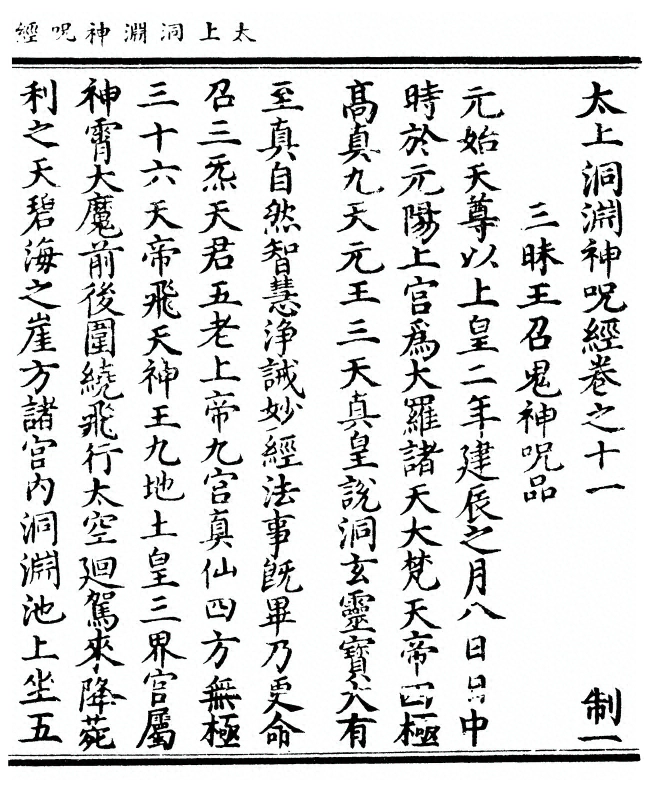 太上洞淵神呪經
太上洞淵神呪經卷之十一 制一
三昧王召鬼神呪品
元始天尊以上皇二年建辰之月八日日中
時於元陽上宮爲大羅諸天大梵天帝四極
高真九天元王三天真皇說洞玄靈寶大有
至真自然智慧淨誡妙經法事旣畢乃更命
召三炁天君五老上帝九宮真仙四方無極
三十六天帝飛天神王九地土皇三界官屬
神霄大魔前後圍繞飛行太空廻駕來降菀
利之天碧海之崖方諸宮內洞淵池上坐五